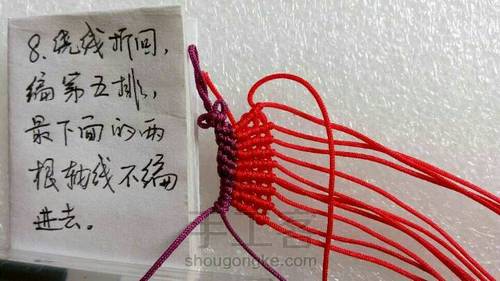 8.绕线折回，
编第五排，
最下面的两
根轴线不编
进去。
手工客
shougongke.com